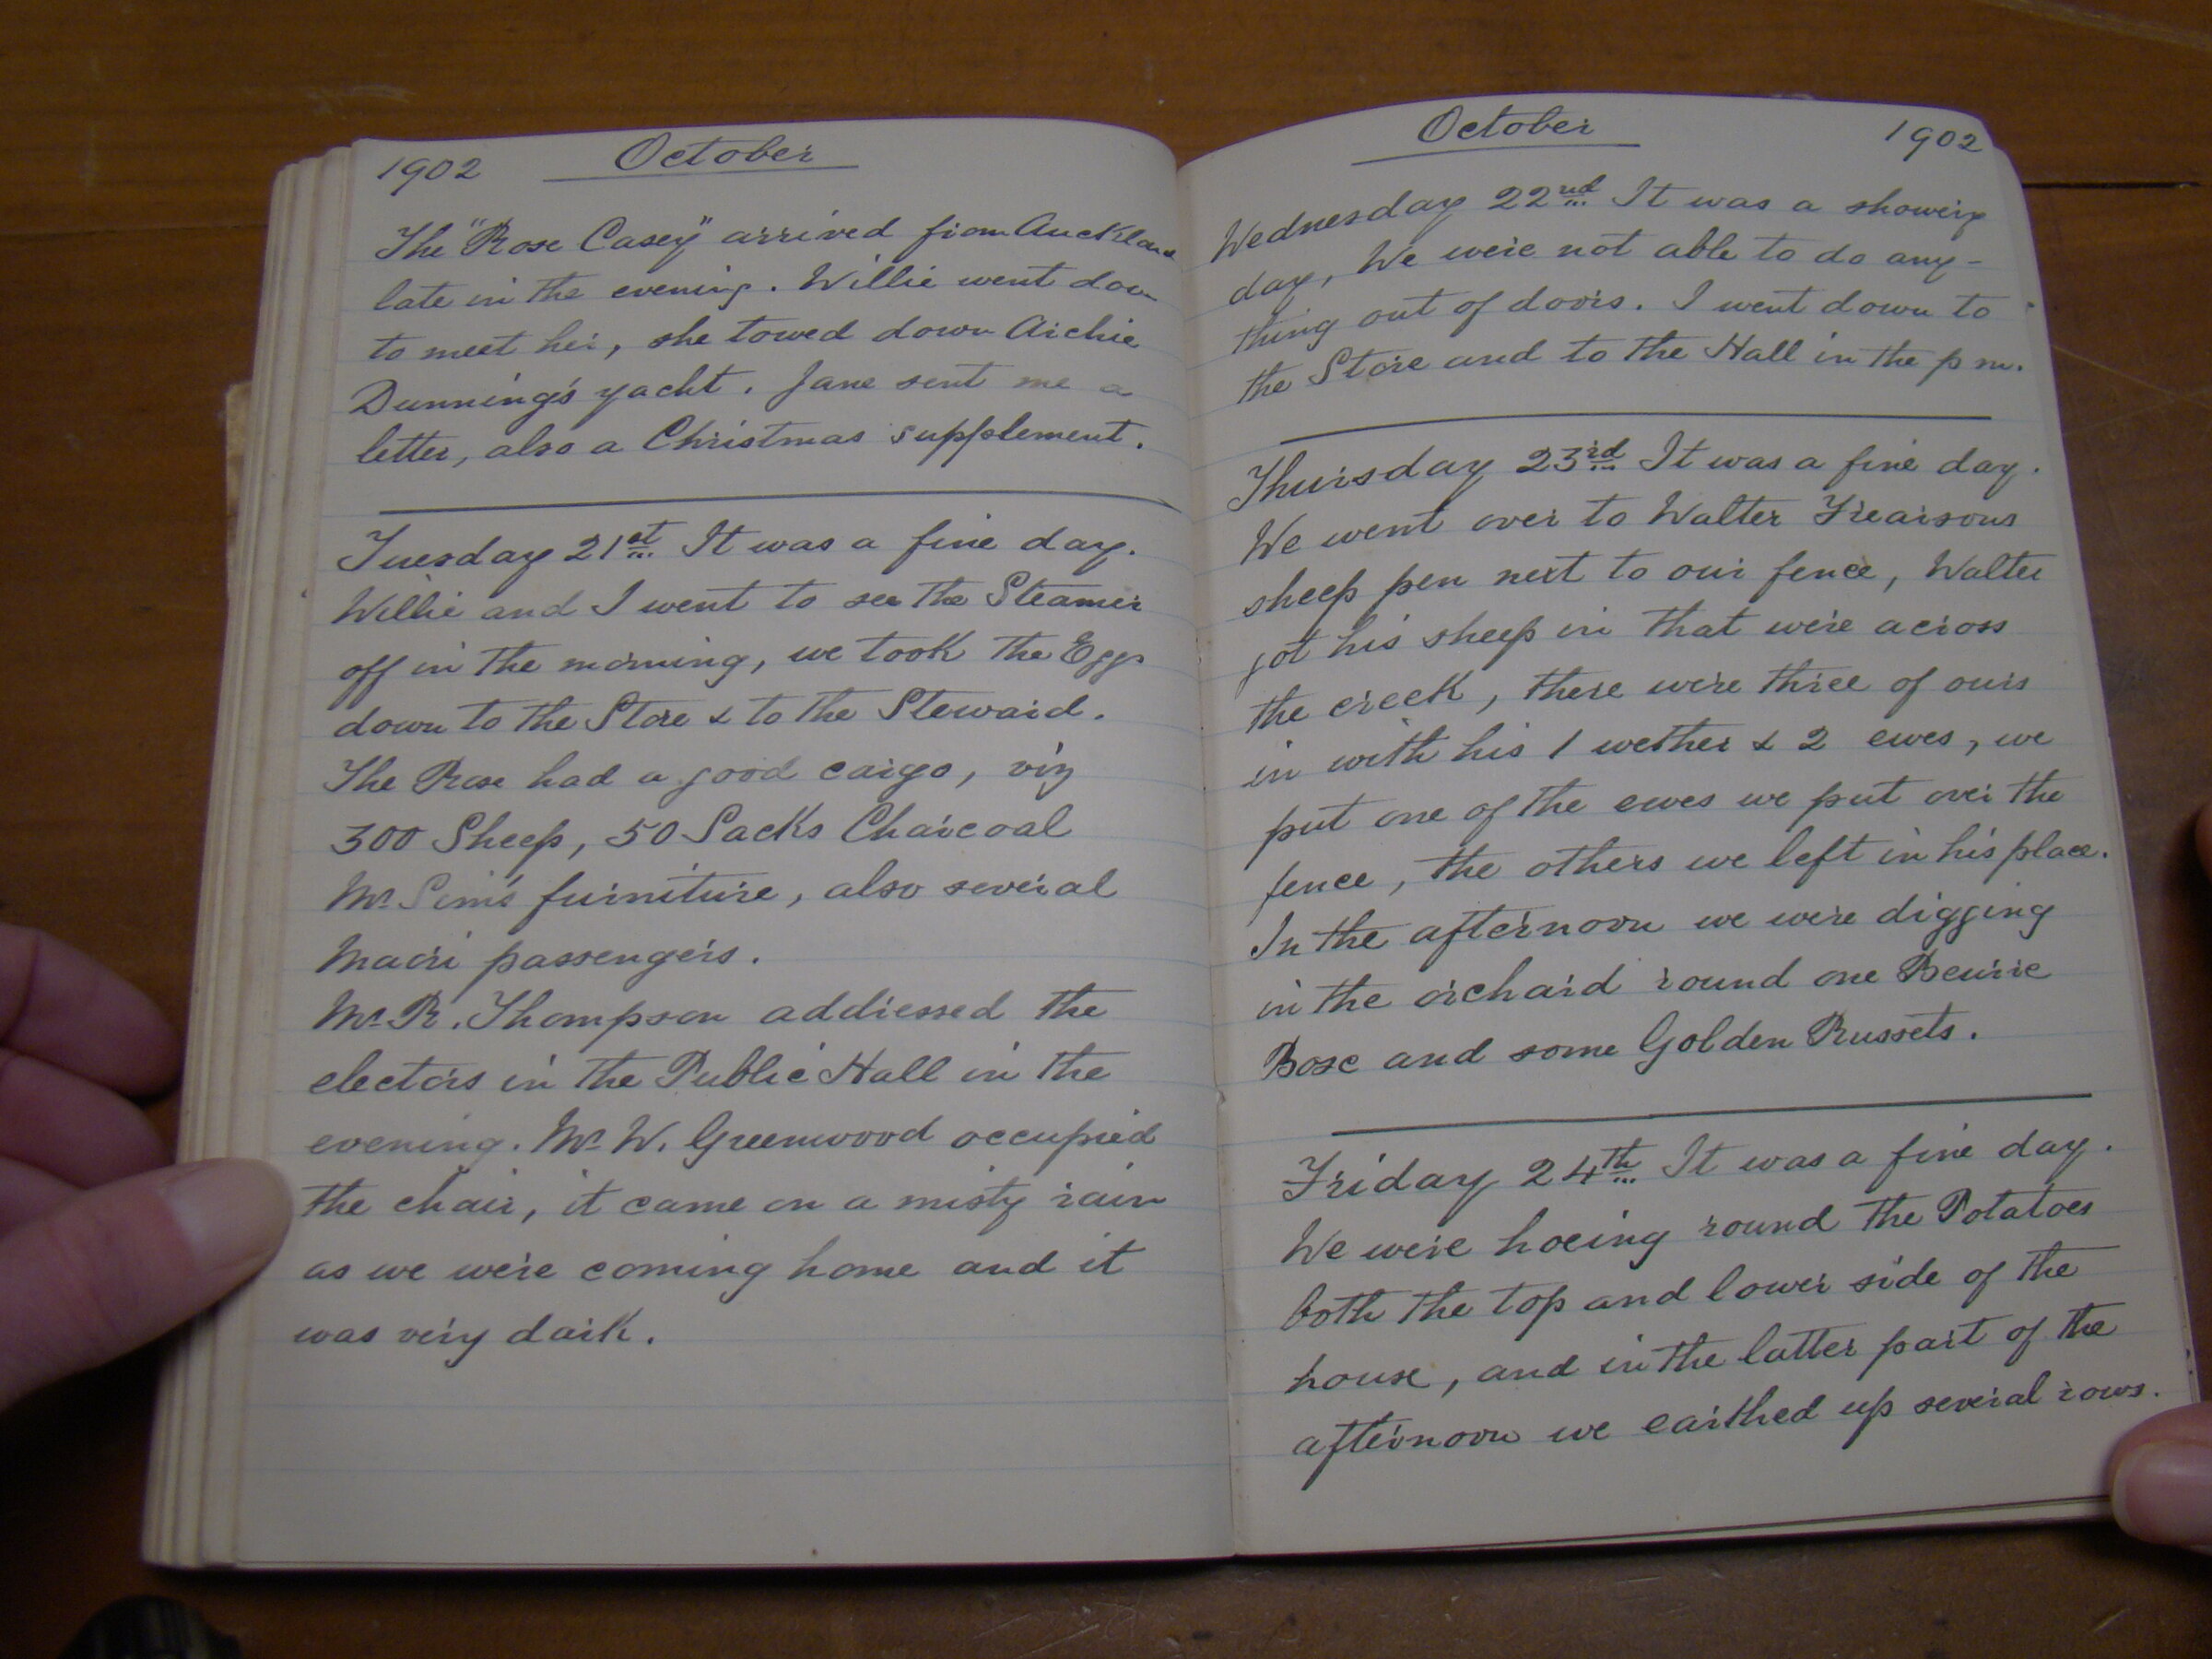 1902 October
The "Rose Casey" arrived from Auckland
late in the evening. Willie went down
to meet her, she towed down Archie
Dunning's yacht. Jane sent me a
letter, also a Christmas supplement.
Tuesday 21st It was a fine day.
Willie and I went to see the Steamer
off in the morning, we took the Eggs
down to the Store & to the Steward.
The Rose had a good cargo, viz
300 Sheep, 50 Sacks Charcoal
Mr Sim's furniture, also several
Maori passengers.
Mr R. Thompson addressed the
electors in the Public Hall in the
evening. Mr W. Greenwood occupied
the chair, it came on a misty rain
as we were coming home and it
was very dark.
October 1902
Wednesday 22nd It was a showery
day, We were not able to do any-
thing out of doors. I went down to
the Store and to the Hall in the pm.
Thursday 23rd It was a fine day.
We went over to Walter Frearsons
sheep pen next to our fence, Walter
got his sheep in that were across
the creek, there were three of ours
in with his 1 wether & 2 ewes, we
put one of the ewes we put over the
fence, the others we left in his place.
In the afternoon we were digging
in the orchard round one Beurre
Bosc and some Golden Russets.
Friday 24th It was a fine day.
We were hoeing round the Potatoes
both the top and lower side of the
house, and in the latter part of the
afternoon we earthed up several rows.